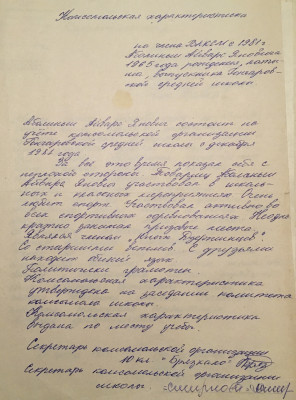 Комсомольская характеристика
на члена ВЛКСМ с 1981 г
Яновича
1965 года рождения, латы-
ша, выпускника
ной средней школы
Яновича состоит на
учёте комсомольской организации
средней школы с декабря
1981 года
За все это время показал себя с
хорошей стороны. Товарищ
Айвар Янович участвовал в школь-
ных и классных мероприятиях. Очень
любит спорт. Участвовал активно во
всех спортивных соревнованиях. Неодно-
кратно занимал призовые места.
Являлся членом
Со старшими вежлив. С друзьями
находит общий язык.
Политически грамотен.
Комсомольская характеристика
утверждена на заседании комитета
комсомола школы.
Комсомольская характеристика
выдана по месту учебы.
Секретарь комсомольской организации
10 кл
Секретарь комсомольской организации
школы: -Смирнова-